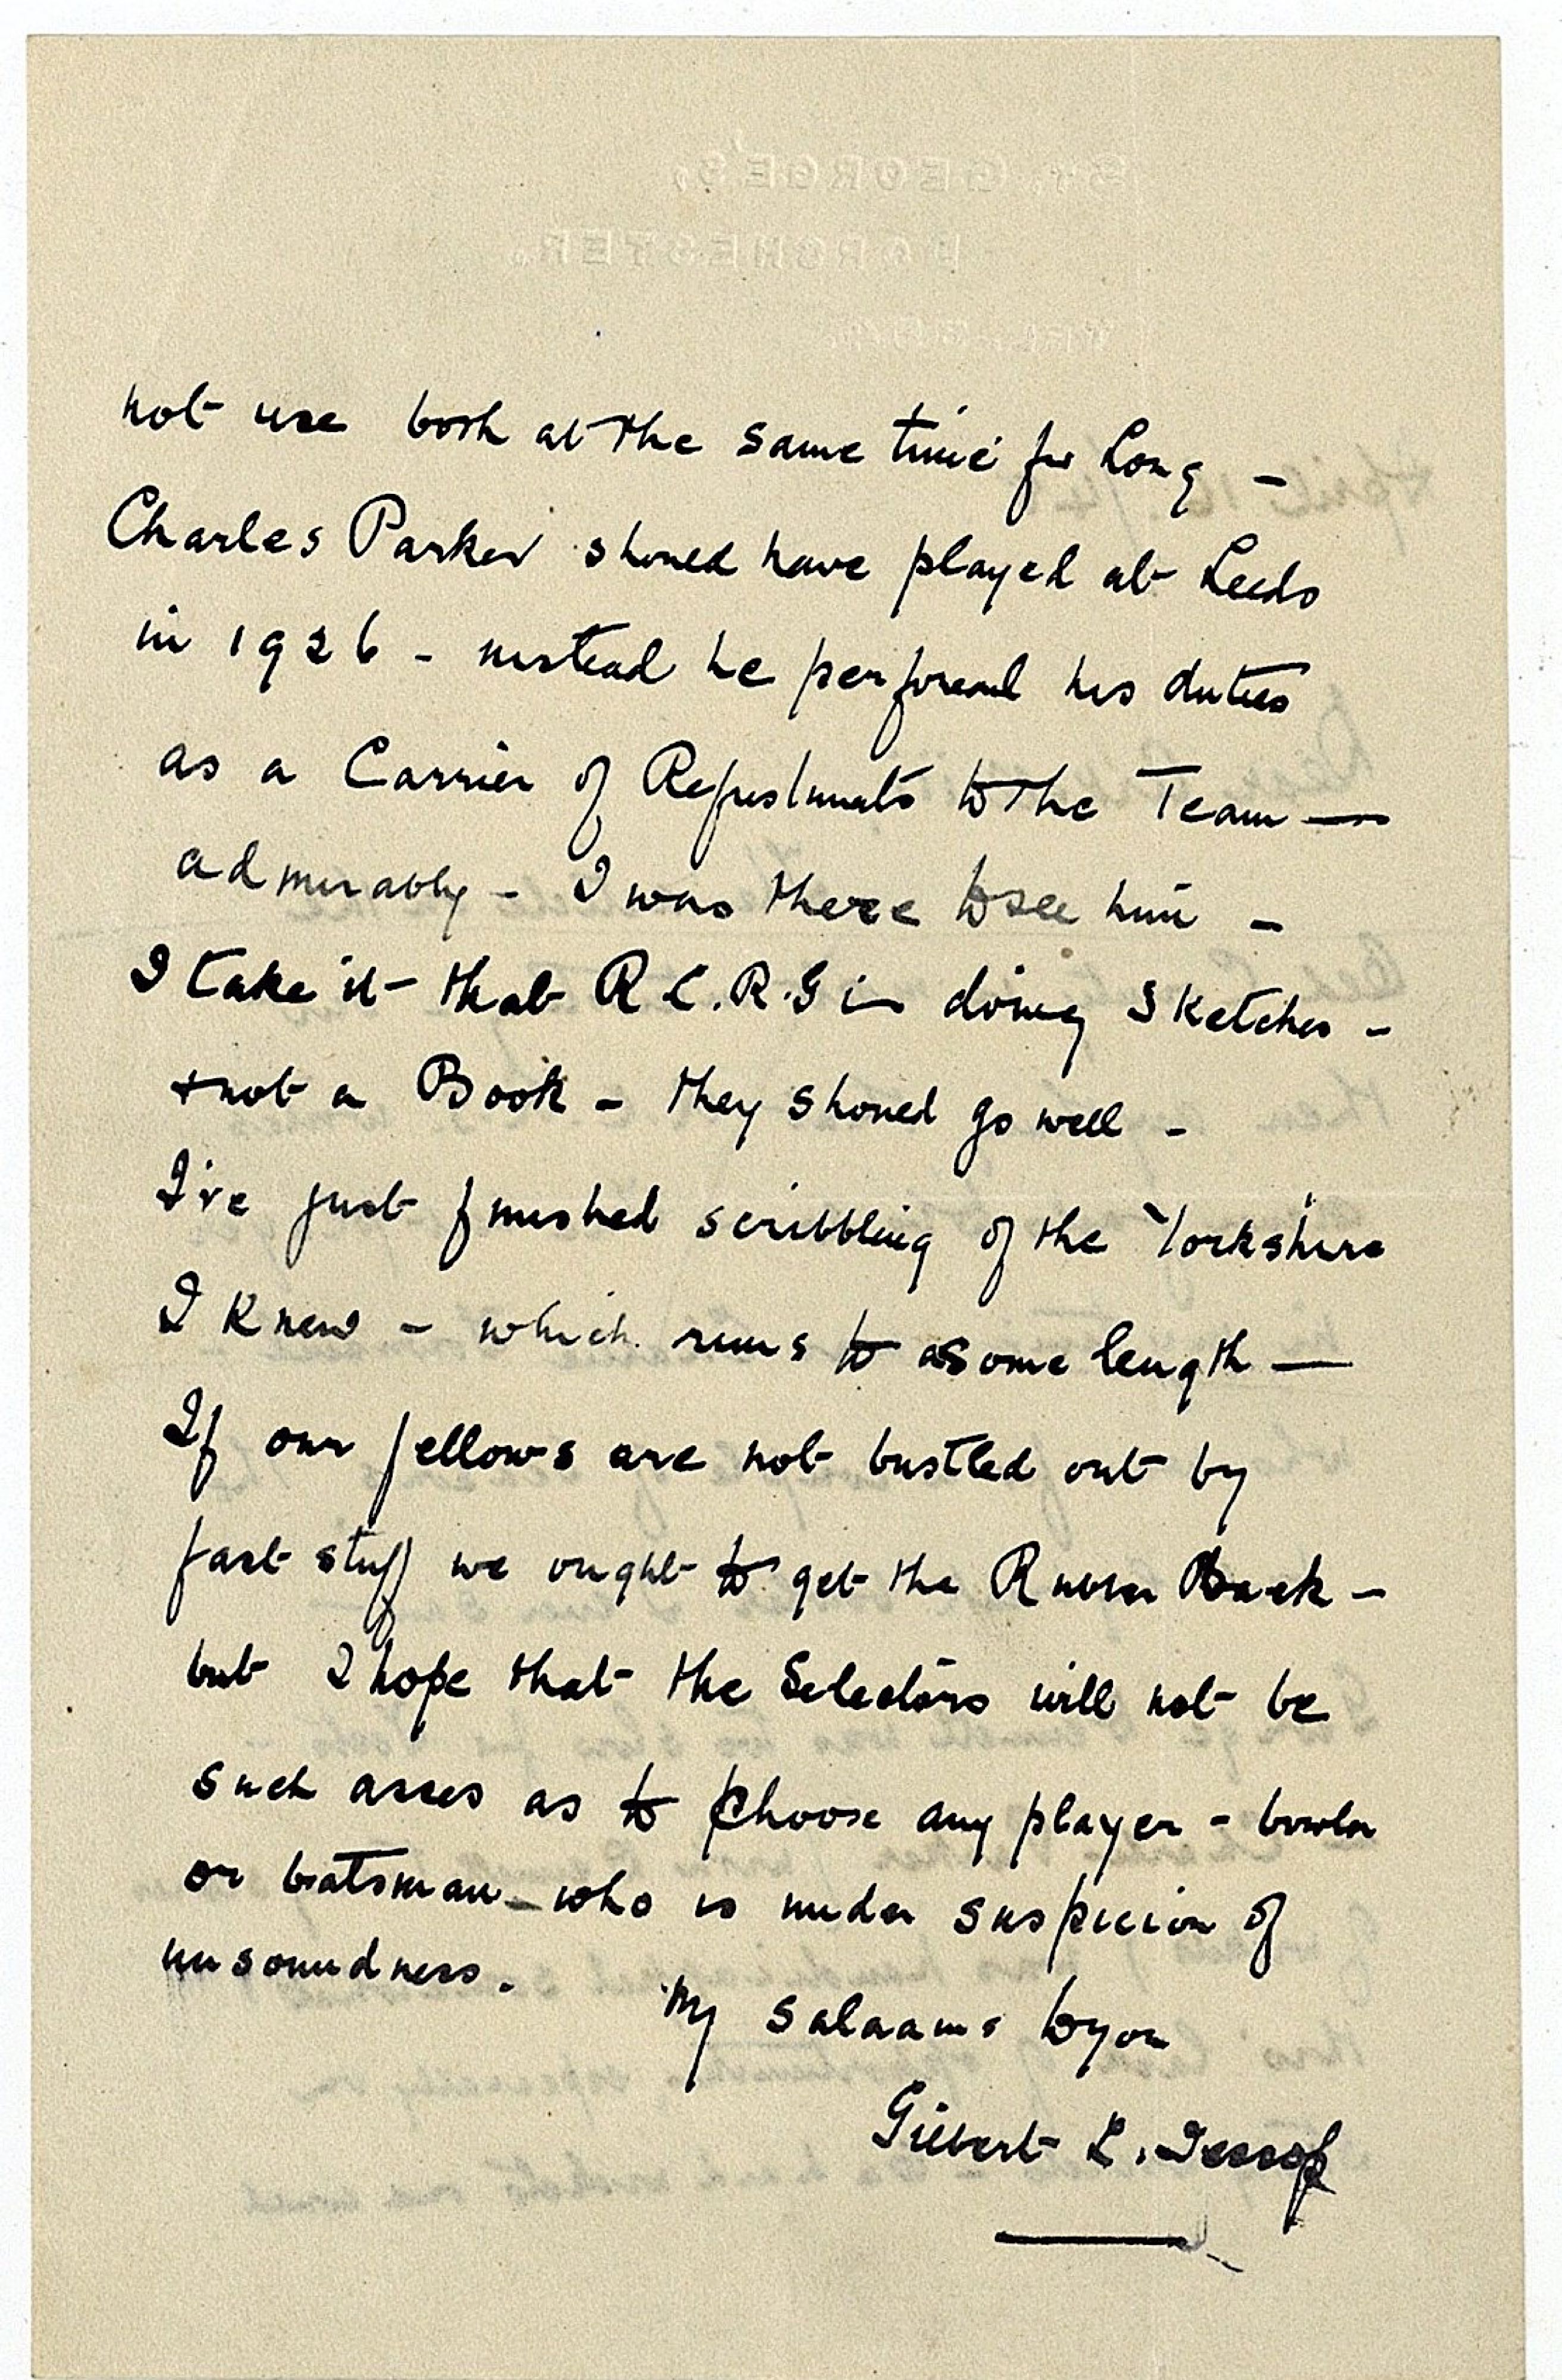 ST. GEORGE'S,
DORCHESTER.
not use both at the same time for Long –
Charles Parker should have played at Leeds
in 1926 – instead he performed his duties
as a Carrier of Refreshments to the Team —
admirably – I was there to see him –
I take it that R.C.R.G is doing sketches –
+ not a Book – they should go well –
I've just finished scribbling of the Yorkshire
I knew – which runs to some length —
If our fellows are not bustled out by
fast stuff we ought to get the Rubber Back –
but I hope that the Selectors will not be
such asses as to choose any player – bowler
or batsman – who is under suspicion of
unsoundness.
My salaams to you
Gilbert L. Jessop